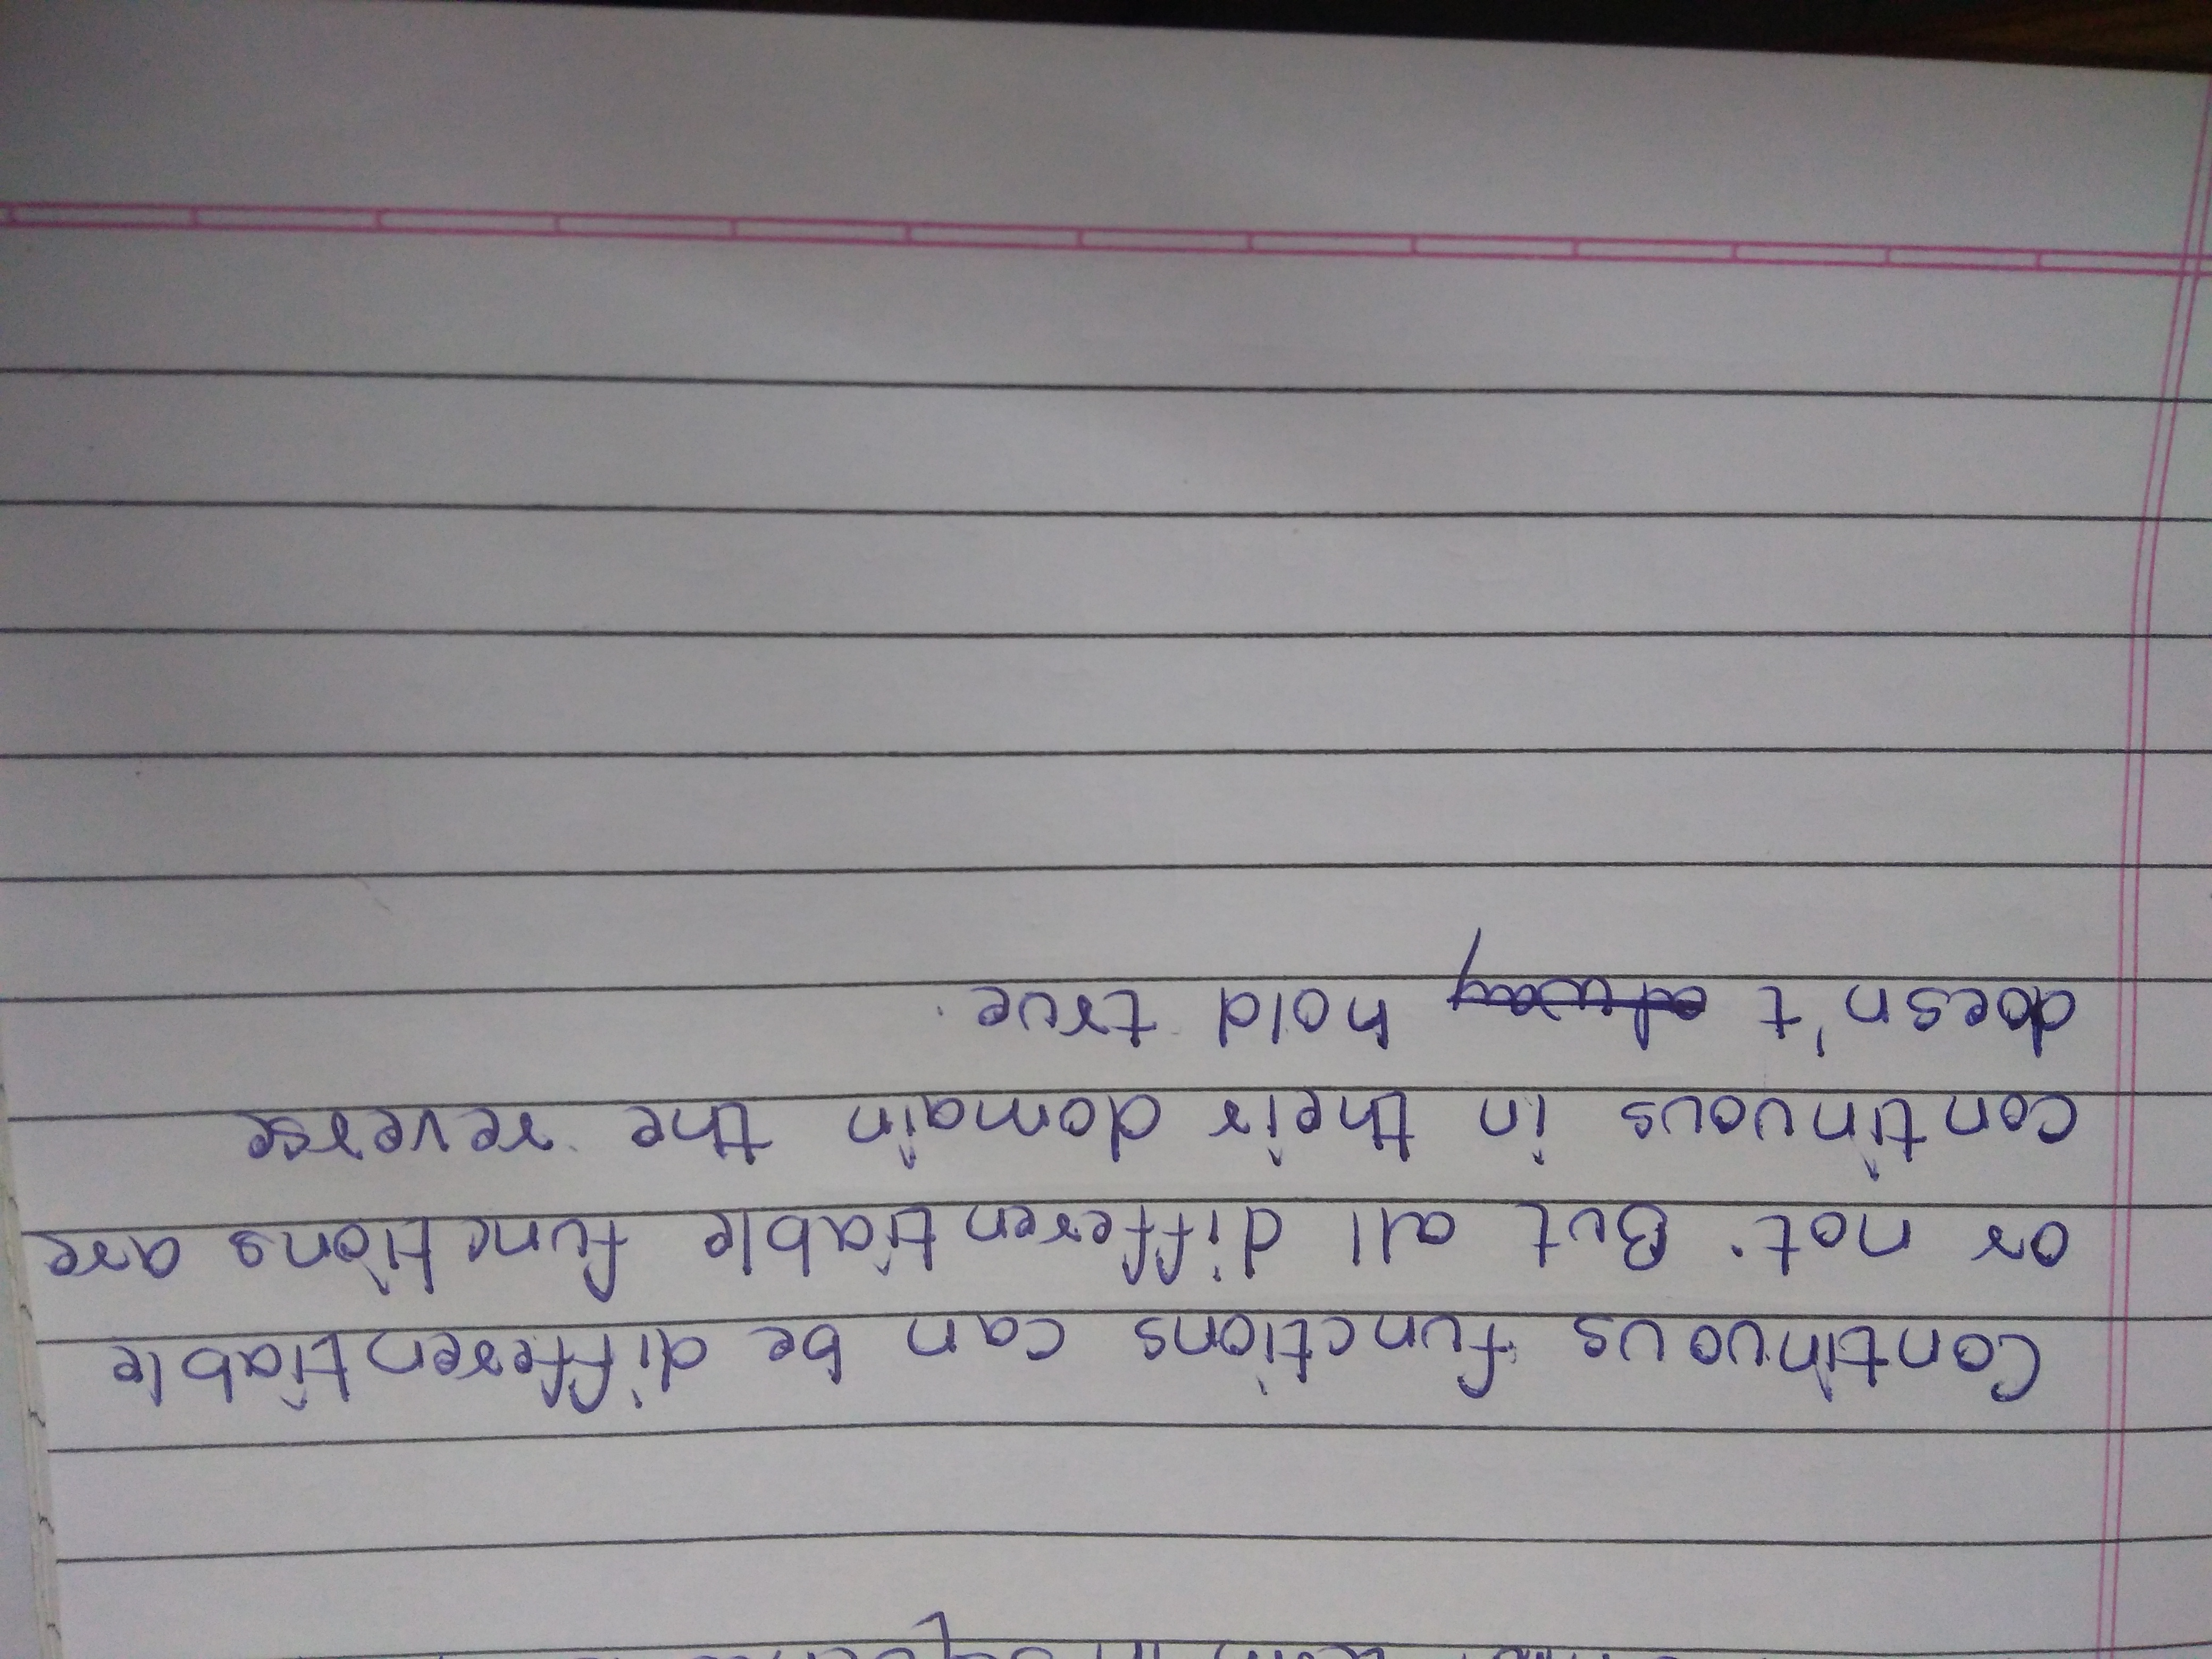 Continuous functions can be differentiable
or not. But all differentiable functions are
continuous in their domain the reverse
doesn't alway hold true.